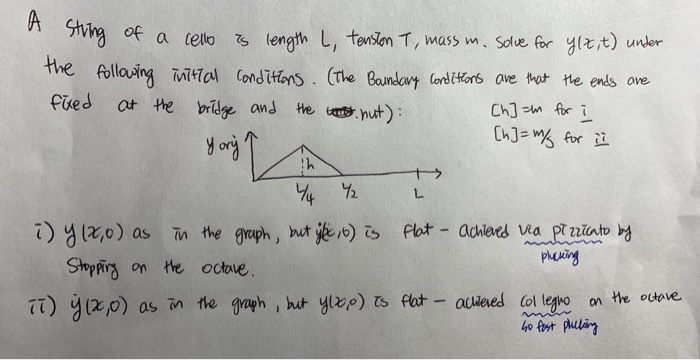 A string of a cello is length L, tension T, mass m. Solve for y(x,t) under
the following initial conditions. (The Boundary Conditions are that the ends are
fixed at the bridge and the nut):
[h]=m for i
[h]=m/s for ii
y or ẏ
h
L/4 L/2 L
i) y(x,0) as in the graph, but ẏ(x,0) is flat - achieved via pizzicato by
plucking
stopping on the octave.
ii) ẏ(x,0) as in the graph, but y(x,0) is flat - achieved col legno on the octave
so fast plucking